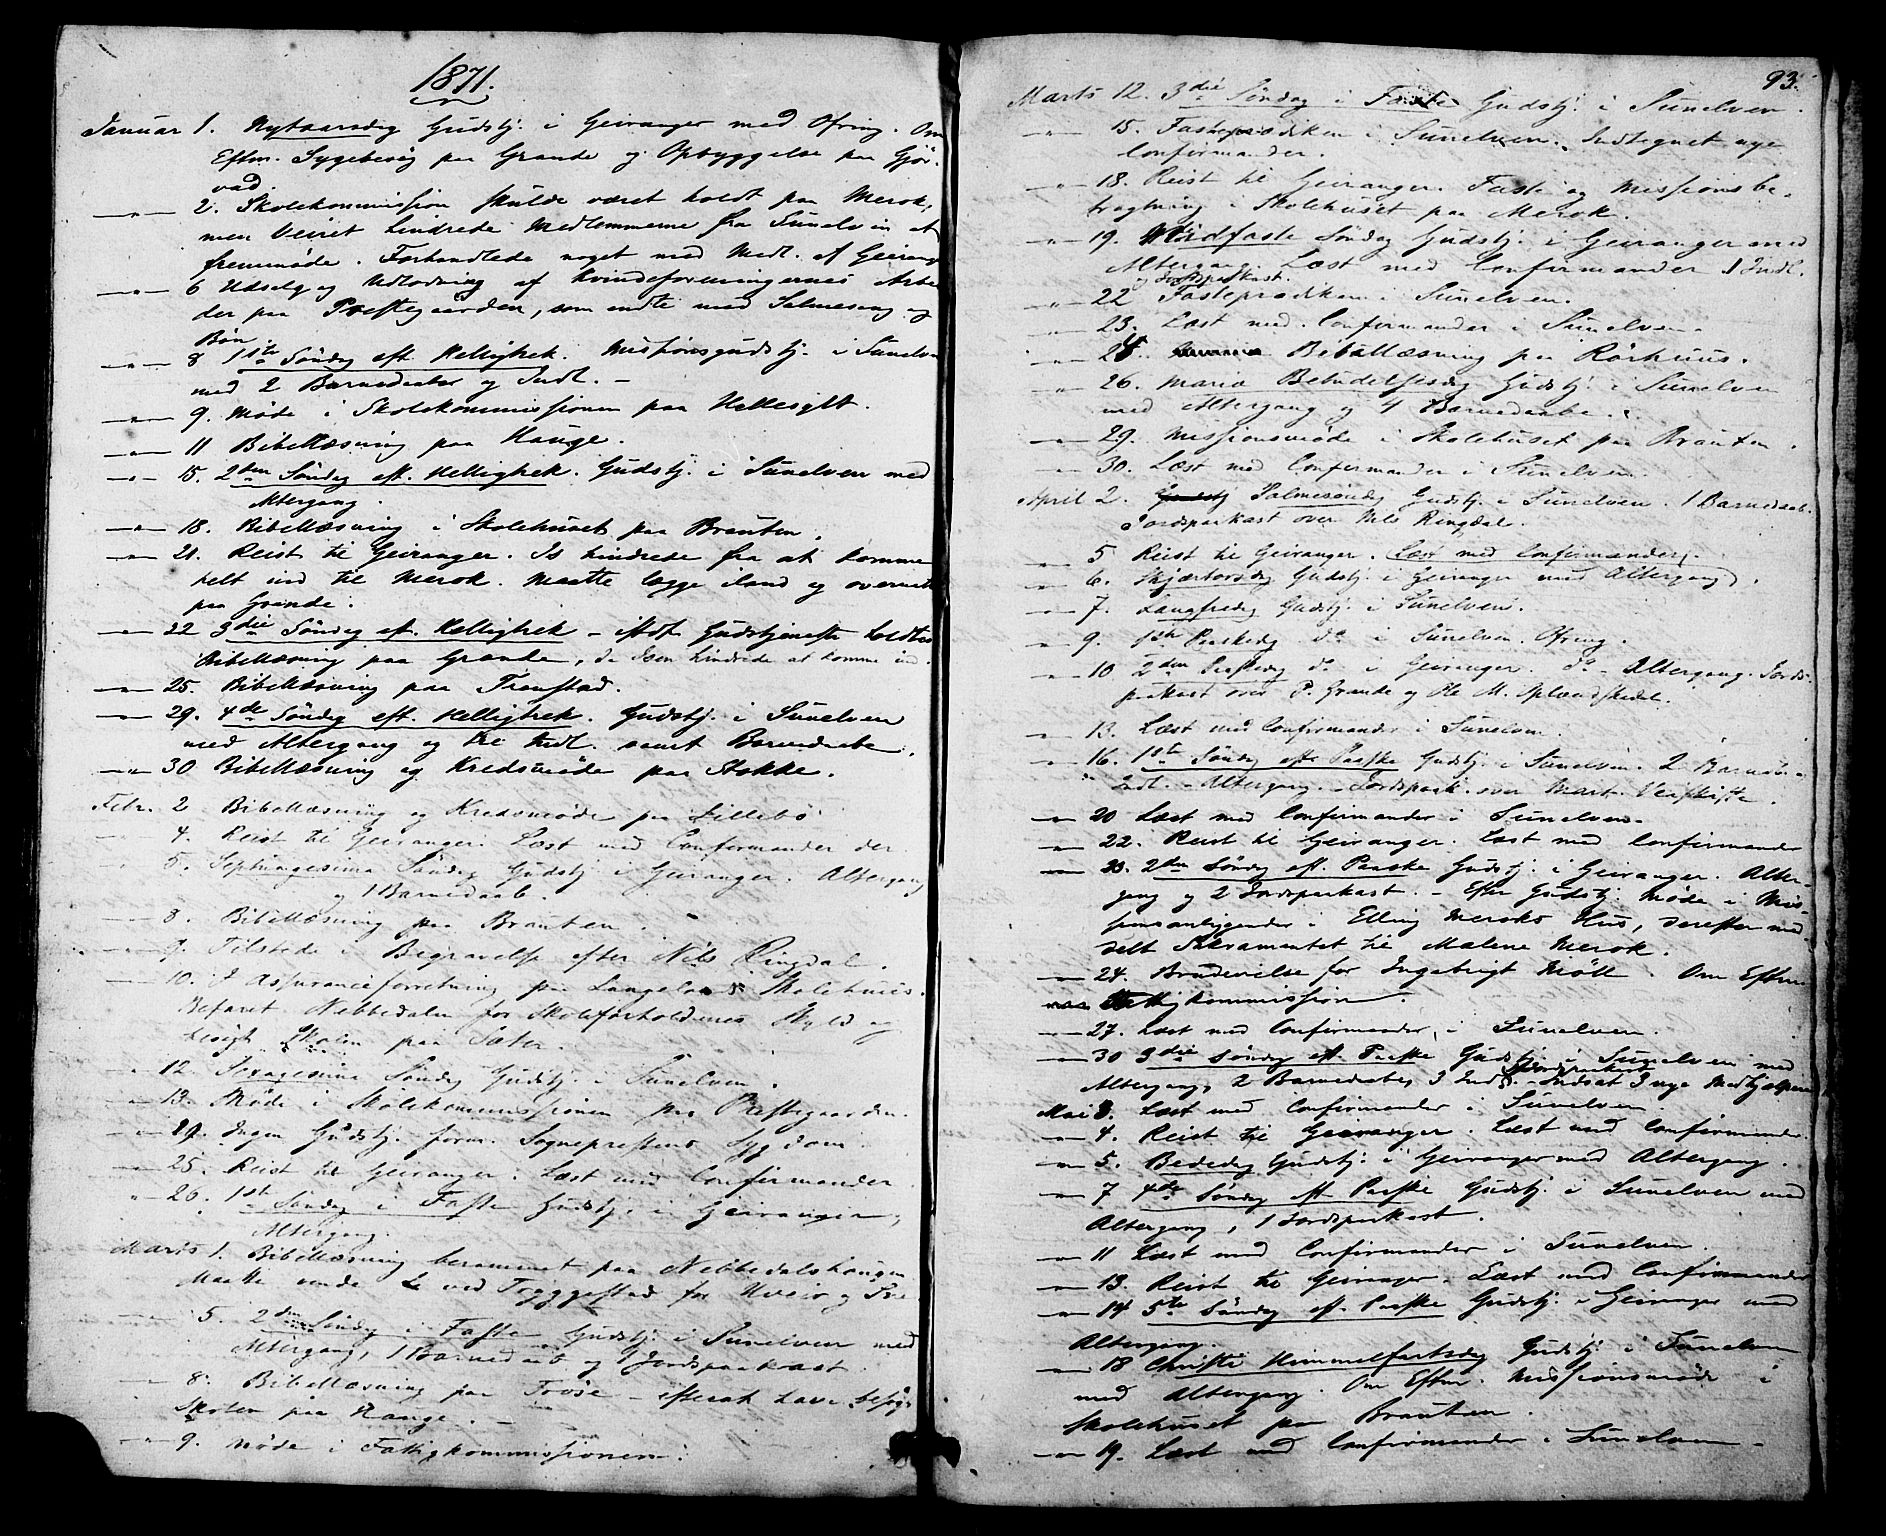 1871.
Januar 1. Nytaarsdag Gudstj. i Geiranger med Ofring. Om
Eftm. Sygebesøg paa Grande og Opbyggelse paa Gjør-
vad.
—"— 2. Skolekommission skulde været holdt paa Merok,
men Veiret hindrede Medlemmerne fra Sunelven at
fremmøde. Forhandlede noget med Medl. af Geirang
—"— 6 Udsalg og Udlodning af Kvindeforeningernes Arbei
der paa Præstegaarden, som endte med Salmesang og
Bøn
—"— 8 1ste Søndag eft. Helligtrek. Missionsgudstj. i Sunelv
med 2 Barnedaaber og Indl. –
—"— 9. Møde i Skolekommissionen paa Hellesylt.
—"— 11 Bibellæsning paa Hauge.
—"— 15. 2den Søndag eft. Helligtrek. Gudstj. i Sunelven med
Altergang.
—"— 18. Bibellæsning i Skolehuset paa Brauten.
—"— 21. Reist til Geiranger. Is hindrede fra at komme
helt ind til Merok. Maatte lægge iland og overnatte
paa Grande.
—"— 22 3die Søndag eft. Helligtrek – istdf. Gudstjeneste holdtes
Bibellæsning paa Grande, da Isen hindrede at komme ind.
—"— 25. Bibellæsning paa Tronstad.
—"— 29. 4de Søndag eft. Helligtrek. Gudstj. i Sunelven
med Altergang og tre Indl. samt Barnedaabe.
—"— 30 Bibellæsning og Kredsmøde paa Stokke.
Febr. 2 Bibellæsning og Kredsmøde paa Lillebø
4. Reist til Geiranger. Læst med Confirmander der.
5. Septuagesima Søndag Gudstj. i Geiranger. Altergang
og 1 Barnedaab.
8. Bibellæsning paa Brauten.
—"— 9. Tilstede i Begravelse efter Nils Ringdal.
10. I Assuranceforretning paa Langelands Skolehuus.
Befaret Nebbedalen for Skoleforholdenes Skyld og
besigt. Skolen paa Sæter.
12. Sexagesima Søndag Gudstj. i Sunelven.
13. Møde i Skolekommissionen paa Præstegaarden.
—"— 29. Ingen Gudstj. form. Sognepræstens Sygdom.
—"— 25. Reist til Geiranger. Læst med Confirmander
" 26. 1ste Søndag i Faste Gudstj. i Geiranger,
Altergang.
Marts 1. Bibellæsning berammet paa Nebbedalshaugen
Maatte vende om ved Tryggestad for Uveir og
5. 2den Søndag i Faste Gudstj. i Sunelven med
Altergang, 1 Barnedaab og 1 Jordspaakast.
8. Bibellæsning paa Frøse – efterat have besøgt
Skolen paa Hauge. –
—"— 9. Møde i Fattigkommissionen.
93.
Marts 12. 3die Søndag i Faste Gudstj. i Sunelven.
—"— 15. Fasteprædiken i Sunelven. Indtegnet nye
Confirmander.
—"— 18. Reist til Geiranger. Faste og Missionsbe-
tragtning i Skolehuset paa Merok.
—"— 19. Midfaste Søndag Gudstj. i Geiranger med
Altergang. Læst med Confirmander 1 Indl.
og Jordspaakast.
—"— 22 Fasteprædiken i Sunelven.
—"— 23. Læst med Confirmander i Sunelven.
—"— 24. Bibellæsning paa Rørhuus.
—"— 26. Mariæ Bebudelsesdag Gudstj. i Sunelven
med Altergang og 4 Barnedaabe.
—"— 29. Missionsmøde i Skolehuset paa Brauten.
—"— 30. Læst med Confirmander i Sunelven.
April 2. Gudstj Palmesøndag Gudstj. i Sunelven. 1 Barnedaab.
Jordspaakast over Nils Ringdal.
5 Reist til Geiranger. Læst med Confirmander.
—"— 6. Skjærtorsdag Gudstj. i Geiranger med Altergang.
—"— 7. Langfredag Gudstj. i Sunelven.
—"— 9. 1ste Paaskedag do i Sunelven. Ofring.
—"— 10 2den Paaskedag do i Geiranger. do – Altergang. Jords-
paakast over P. Grande og Ole M.
—"— 13. Læst med Confirmander i Sunelven.
—"— 16. 1ste Søndag eft. Paaske Gudstj. i Sunelven. 2 Barned.
Indl. – Altergang. – Jordspaak. over Mart.
—"— 20 Læst med Confirmander i Sunelven.
—"— 22. Reist til Geiranger. Læst med Confirmander
—"— 23. 2den Søndag eft. Paaske Gudstj. i Geiranger. Alter-
gang og 2 Jordspaakast. – Efter Gudstj. Møde i Mis-
sionsanliggender i Elling Meroks Hus, derefter med-
delt Sakramentet til Malene Merok.
—"— 24. Brudevielse for Ingebrigt Möll. Om Eftm
Fattigkommission.
—"— 27. Læst med Confirmander i Sunelven.
—"— 30 3die Søndag eft. Paaske Gudstj. i Sunelven med
Altergang, 2 Barnedaabe, 3 Indl. Jordspaakast – Indsat 3 nye Medhjælpere
Mai 3. Læst med Confirmander i Sunelven.
—"— 4. Reist til Geiranger. Læst med Confirmander.
—"— 5. Bededag Gudstj. i Geiranger med Altergang.
—"— 7 4de Søndag eft. Paaske Gudstj. i Sunelven med
Altergang, 1 Jordspaakast.
—"— 11 Læst med Confirmander i Sunelven.
—"— 13. Reist til Geiranger. Læst med Confirmander
—"— 14 5te Søndag eft. Paaske Gudstj. i Geiranger med
Altergang.
—"— 18 Christi Himmelfartsdag Gudstj. i Sunelven
med Altergang. Om Eftm. Missionsmøde i
Skolehuset paa Brauten.
—"— 19. Læst med Confirmander i Sunelven.